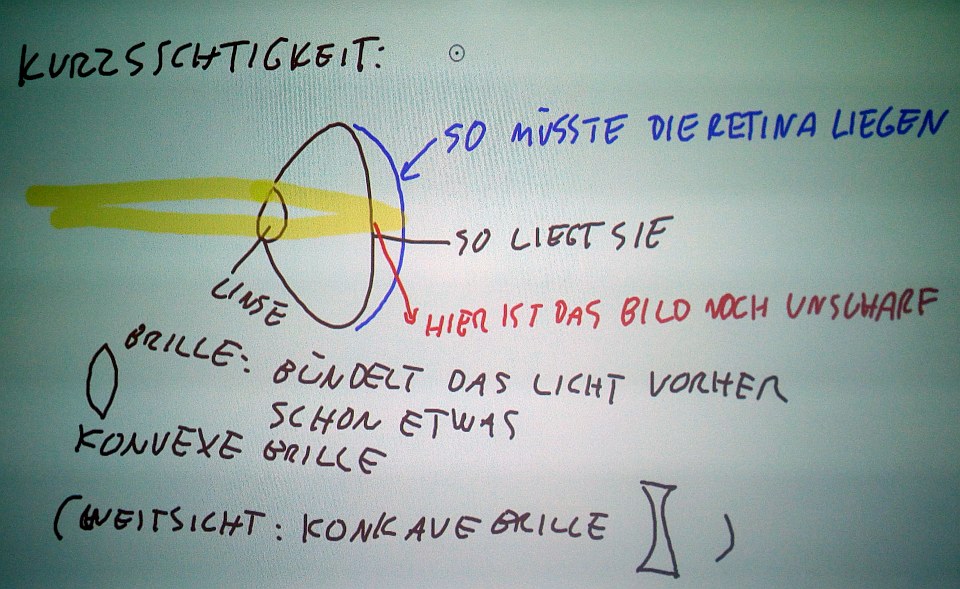 KURZSSCHTIGKEIT:
SO MÜSSTE DIE RETINA LIEGEN
SO LIEGT SIE
LINSE
HIER IST DAS BILD NOCH UNSCHARF
BRILLE: BÜNDELT DAS LICHT VORHER
SCHON ETWAS
KONVEXE BRILLE
(WEITSICHT: KONKAVE BRILLE )